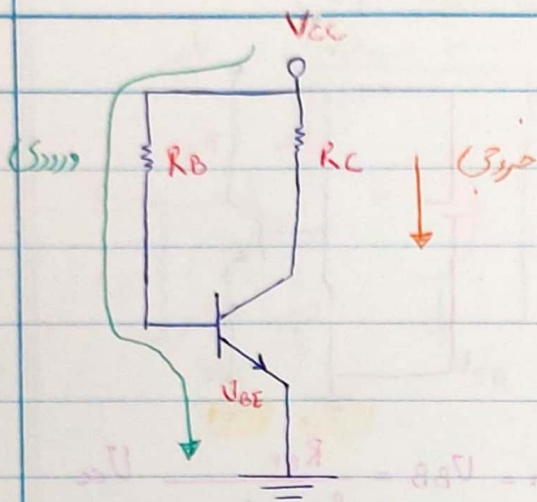 VCC
ورودی
RB
RC
خروجی
VBE